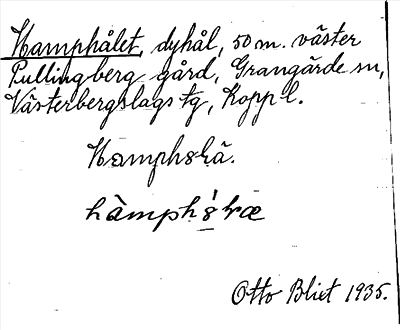 Hamphålet, dyhål, 50 m. väster
Pullingberg gård, Grangärde sn,
Västerbergslags tg, Kopp l.
Hamphshå.
Otto Blixt 1935.